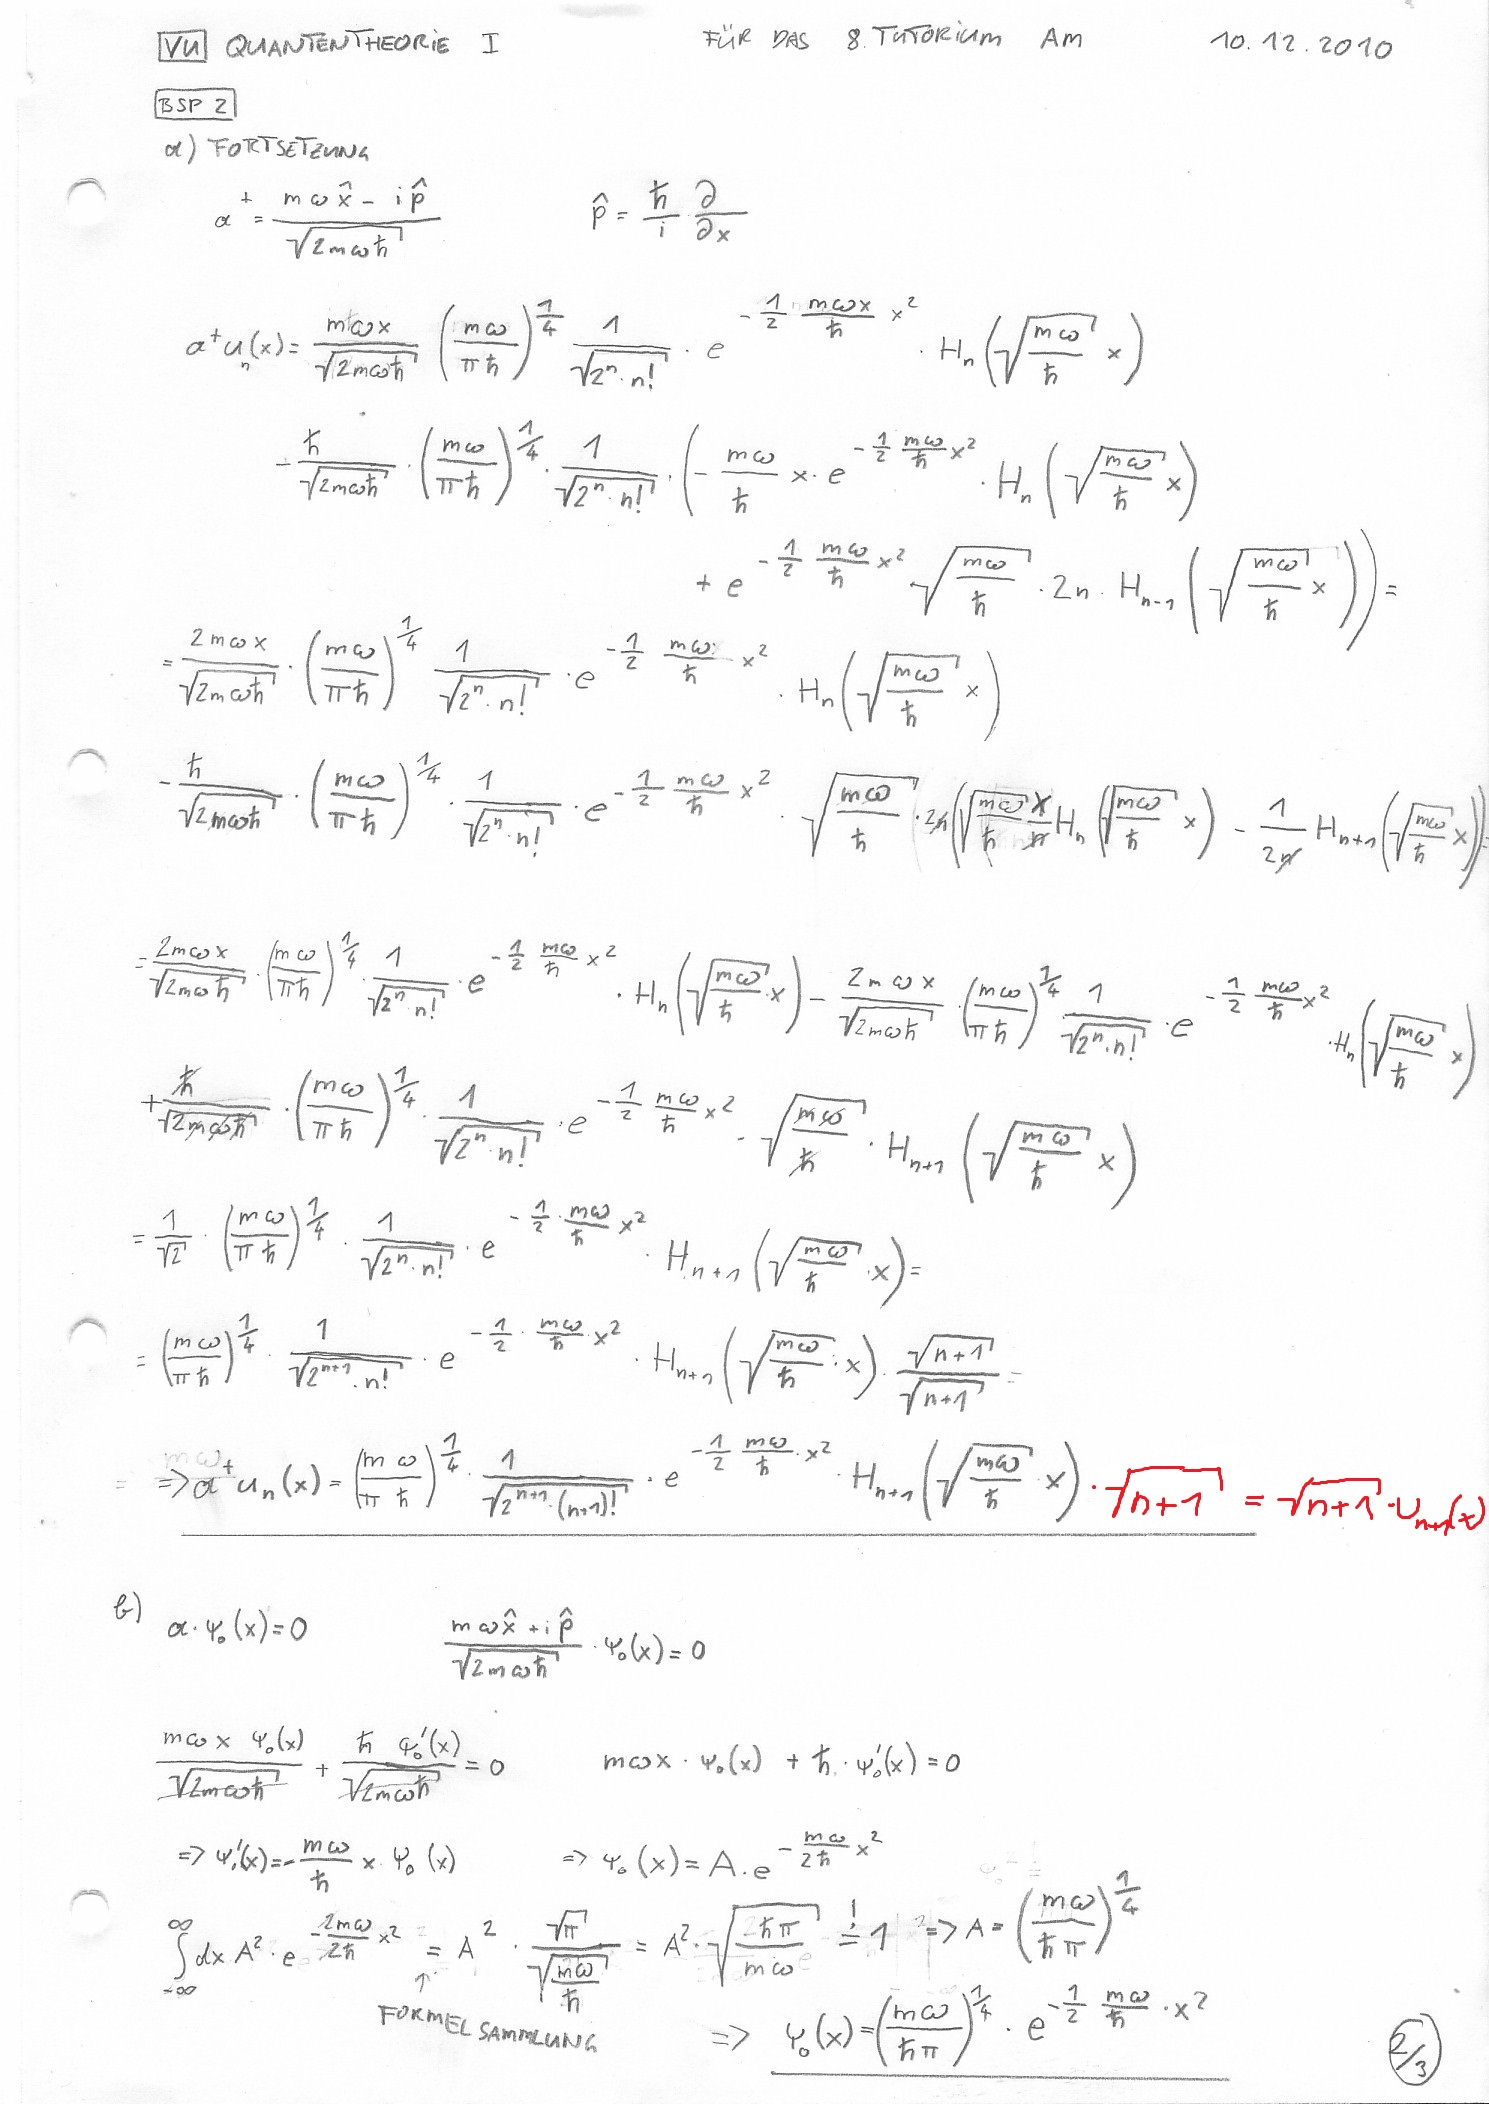 VU QUANTENTHEORIE I FÜR DAS 8. TUTORIUM AM 10.12.2010
BSP 2
a) FORTSETZUNG
a⁺ = (mωx̂ - ip̂)/√(2mωħ)    p̂ = ħ/i · ∂/∂x
a⁺uₙ(x) = mωx/√(2mωħ) (mω/πħ)^(1/4) 1/√(2ⁿ·n!) · e^(-1/2 mωx/ħ x²) · Hₙ(√(mω/ħ) x)
- ħ/√(2mωħ) · (mω/πħ)^(1/4) · 1/√(2ⁿ·n!) · (- mω/ħ x · e^(-1/2 mω/ħ x²) · Hₙ(√(mω/ħ) x)
+ e^(-1/2 mω/ħ x²) · √(mω/ħ) · 2n · Hₙ₋₁(√(mω/ħ) x)) =
= 2mωx/√(2mωħ) · (mω/πħ)^(1/4) 1/√(2ⁿ·n!) · e^(-1/2 mω/ħ x²) · Hₙ(√(mω/ħ) x)
- ħ/√(2mωħ) · (mω/πħ)^(1/4) · 1/√(2ⁿ·n!) · e^(-1/2 mω/ħ x²) · √(mω/ħ) · 2n(√(mω/ħ) x/n Hₙ(√(mω/ħ) x) - 1/2n Hₙ₊₁(√(mω/ħ) x)) =
= 2mωx/√(2mωħ) · (mω/πħ)^(1/4) · 1/√(2ⁿ·n!) · e^(-1/2 mω/ħ x²) · Hₙ(√(mω/ħ) · x) - 2mωx/√(2mωħ) · (mω/πħ)^(1/4) 1/√(2ⁿ·n!) · e^(-1/2 mω/ħ x²) · Hₙ(√(mω/ħ) x)
+ ħ/√(2mωħ) · (mω/πħ)^(1/4) · 1/√(2ⁿ·n!) · e^(-1/2 mω/ħ x²) · √(mω/ħ) · Hₙ₊₁(√(mω/ħ) x)
= 1/√2 · (mω/πħ)^(1/4) · 1/√(2ⁿ·n!) · e^(-1/2 · mω/ħ x²) · Hₙ₊₁(√(mω/ħ) · x) =
= (mω/πħ)^(1/4) · 1/√(2ⁿ⁺¹·n!) · e^(-1/2 · mω/ħ · x²) · Hₙ₊₁(√(mω/ħ) · x) · √(n+1)/√(n+1) =
= => a⁺uₙ(x) = (mω/πħ)^(1/4) · 1/√(2ⁿ⁺¹·(n+1)!) · e^(-1/2 mω/ħ · x²) · Hₙ₊₁(√(mω/ħ) · x) · √(n+1) = √(n+1) · uₙ₊₁(x)
b) a·ψ₀(x) = 0    (mωx̂ + ip̂)/√(2mωħ) · ψ₀(x) = 0
mωx ψ₀(x)/√(2mωħ) + ħ ψ₀'(x)/√(2mωħ) = 0    mωx · ψ₀(x) + ħ · ψ₀'(x) = 0
=> ψ₀'(x) = - mω/ħ x · ψ₀(x)    => ψ₀(x) = A · e^(-mω/2ħ x²)
∫_(-∞)^∞ dx A² · e^(-2mω/2ħ x²) = A² · √π/√(mω/ħ) = A² · √(2ħπ/mω) =! 1 => A = (mω/ħπ)^(1/4)
↑
FORMELSAMMLUNG
=> ψ₀(x) = (mω/ħπ)^(1/4) · e^(-1/2 mω/ħ · x²)
2/3